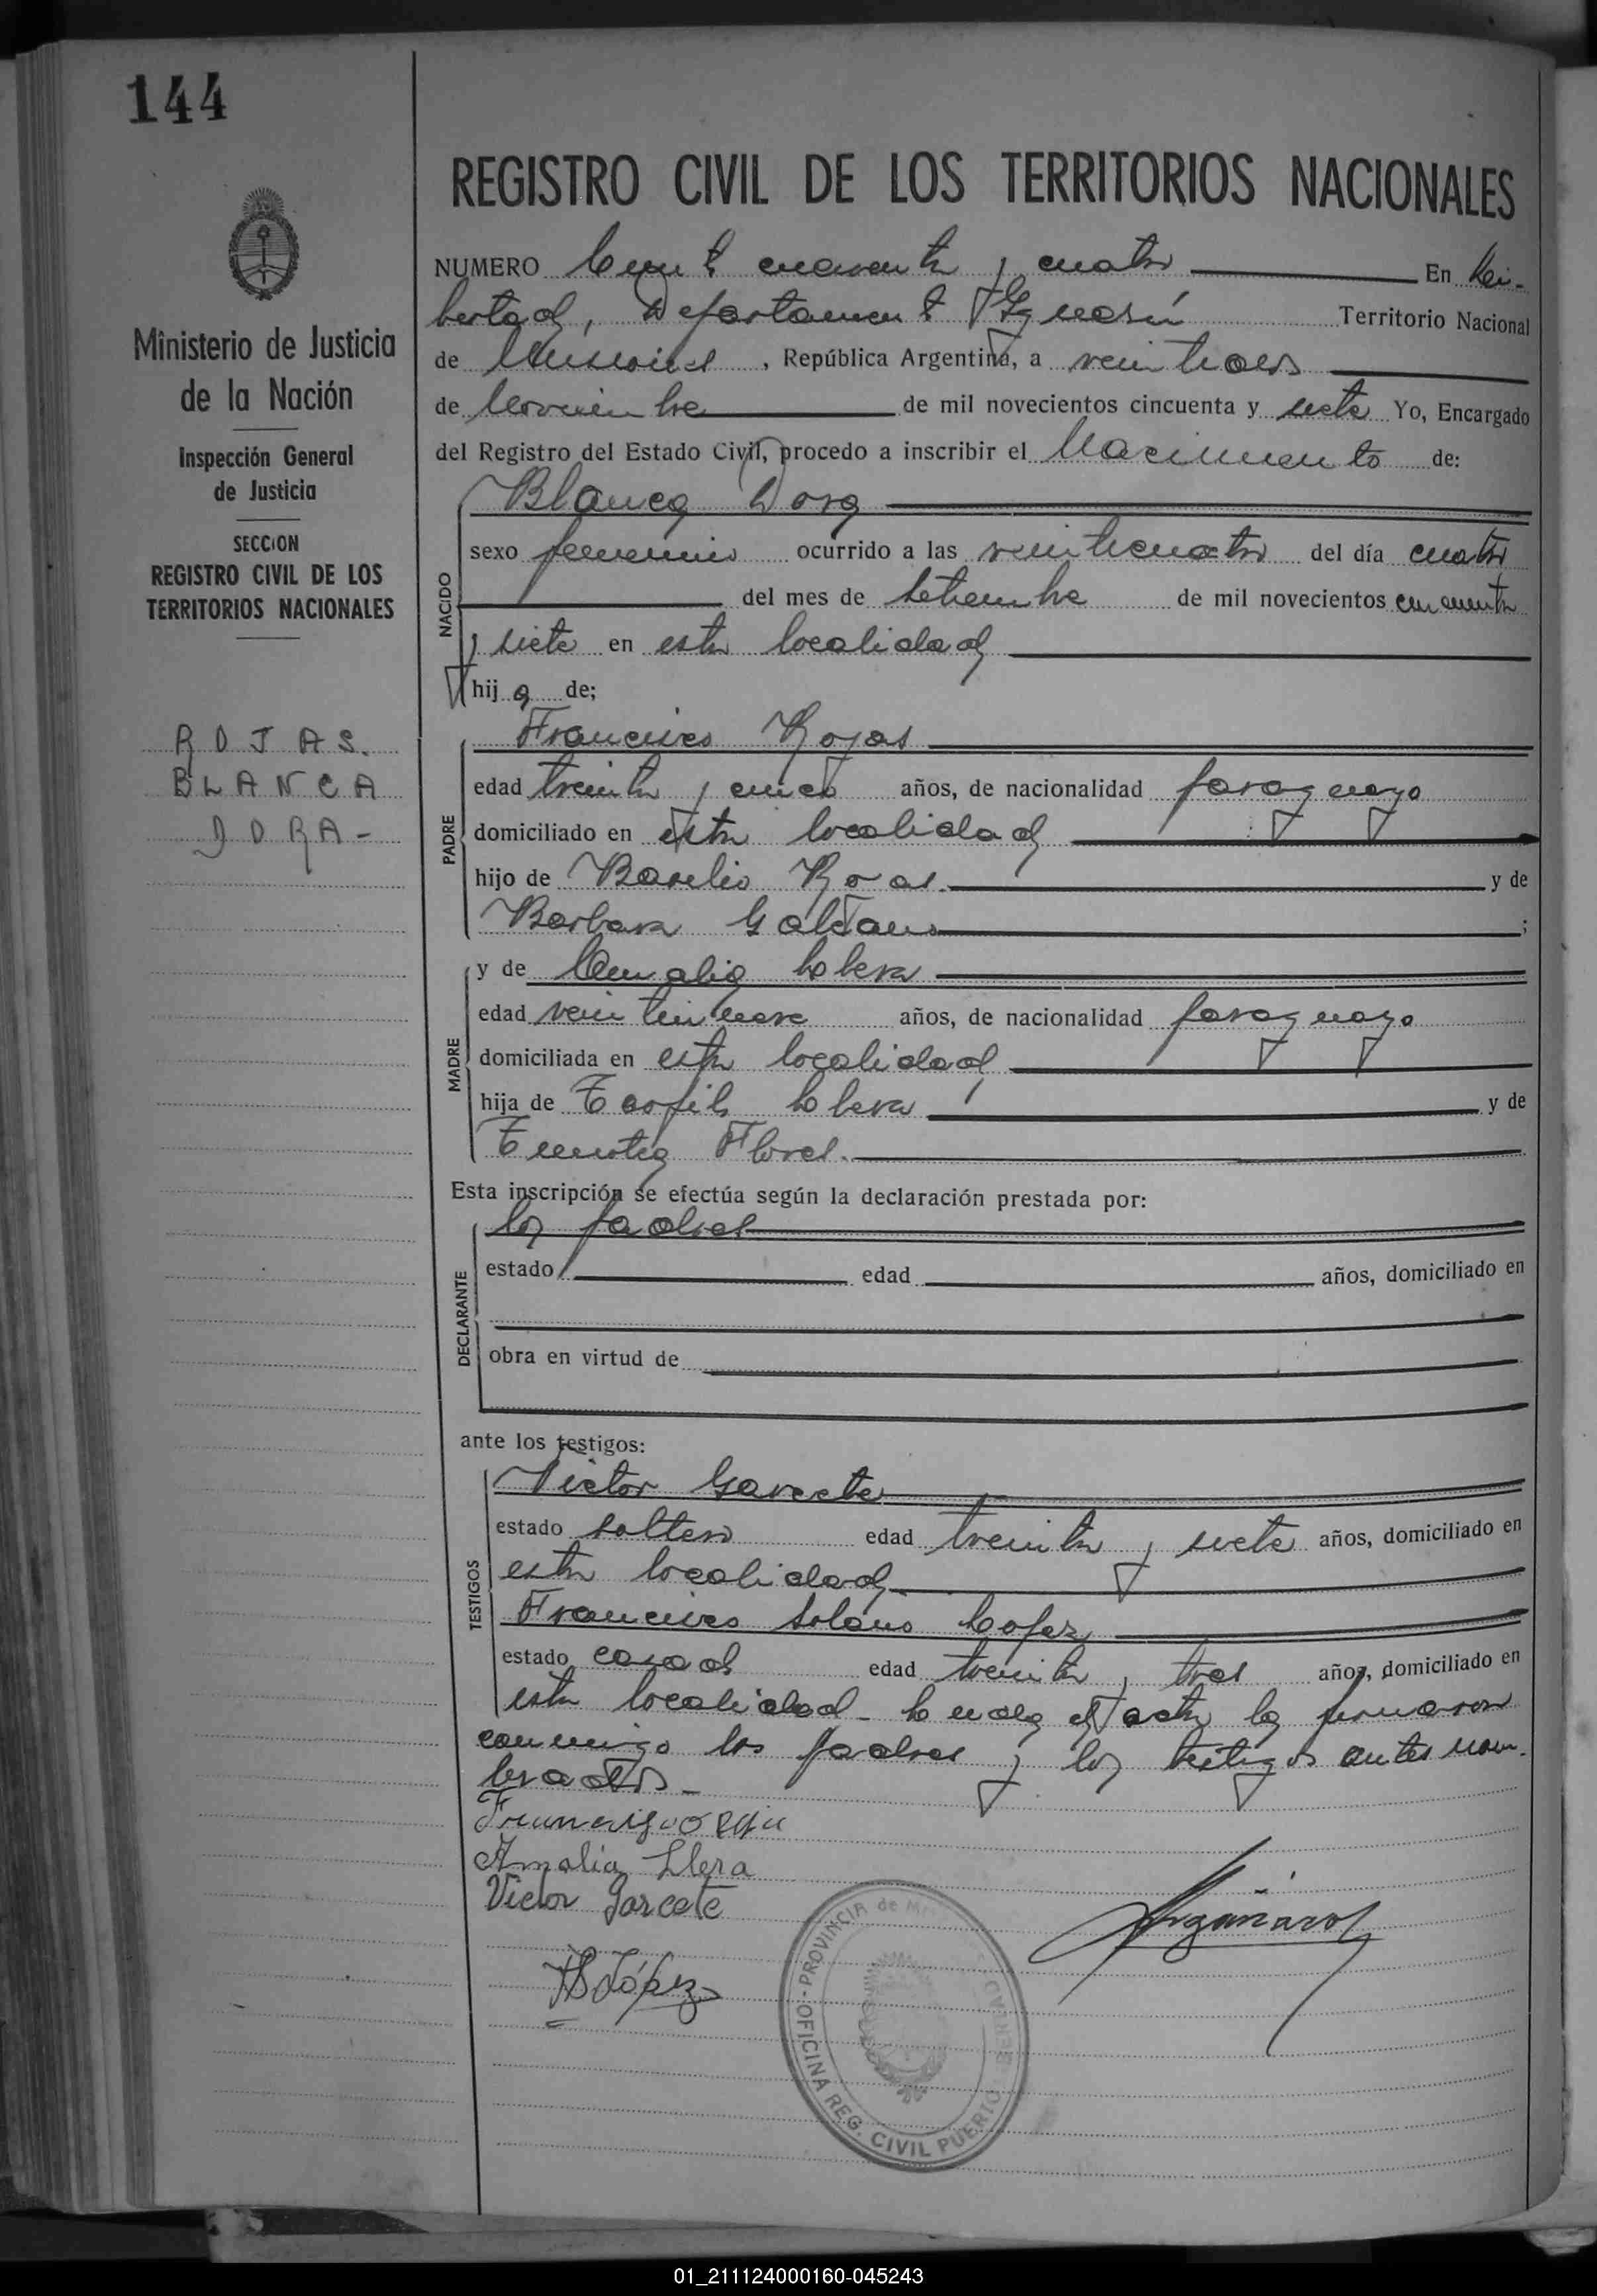 144
REGISTRO CIVIL DE LOS TERRITORIOS NACIONALES
Ministerio de Justicia
de la Nación
Inspección General
de Justicia
SECCION
REGISTRO CIVIL DE LOS
TERRITORIOS NACIONALES
ROJAS.
BLANCA
DORA-
NUMERO Ciento cuarenta y cuatro En Li-
bertad, Departamento Iguazú Territorio Nacional
de Misiones, República Argentina, a veintidos
de Noviembre de mil novecientos cincuenta y siete Yo, Encargado
del Registro del Estado Civil, procedo a inscribir el Nacimiento de:
NACIDO
Blanca Dora
sexo femenino ocurrido a las veinticuatro del día cuatro
del mes de Setiembre de mil novecientos cincuenta
y siete en esta localidad
hija de;
PADRE
Francisco Rojas
edad treinta y cinco años, de nacionalidad paraguaya
domiciliado en esta localidad
hijo de Basilio Rojas y de
Barbara Galeano;
MADRE
y de Amalia
edad veintinueve años, de nacionalidad paraguaya
domiciliada en esta localidad
hija de Teofilo y de
Timotea Flores.
Esta inscripción se efectúa según la declaración prestada por:
DECLARANTE
los padres
estado edad años, domiciliado en
obra en virtud de
ante los testigos:
TESTIGOS
Victor Garcete
estado soltero edad treinta y siete años, domiciliado en
esta localidad
Francisco Solano Lopez
estado casado edad treinta y tres años, domiciliado en
esta localidad - Leida el acta la firmaron
conmigo los padres y los testigos antes nom-
brados -
Amalia Llera
Victor Garcete
FSLópez
OFICINA REG. CIVIL PUERTO - PROVINCIA de
01_211124000160-045243